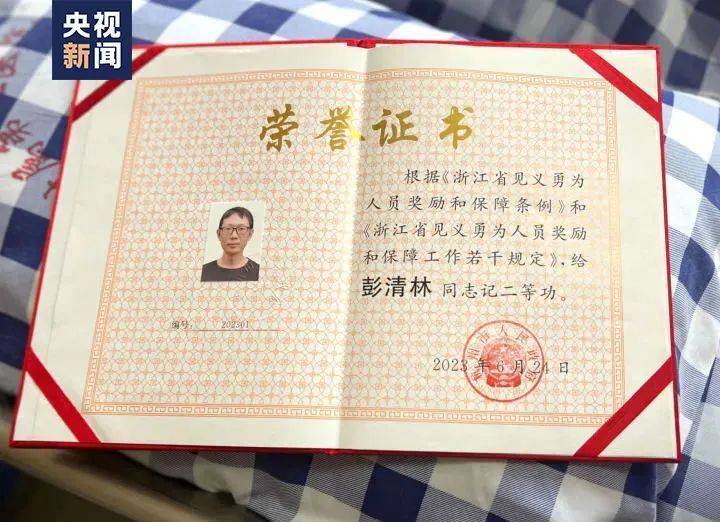 央视
新闻
荣誉证书
根据《浙江省见义勇为
人员奖励和保障条例》和
《浙江省见义勇为人员奖励
和保障工作若干规定》,给
彭清林 同志记二等功。
编号: 202301
2023 年 6 月 24 日